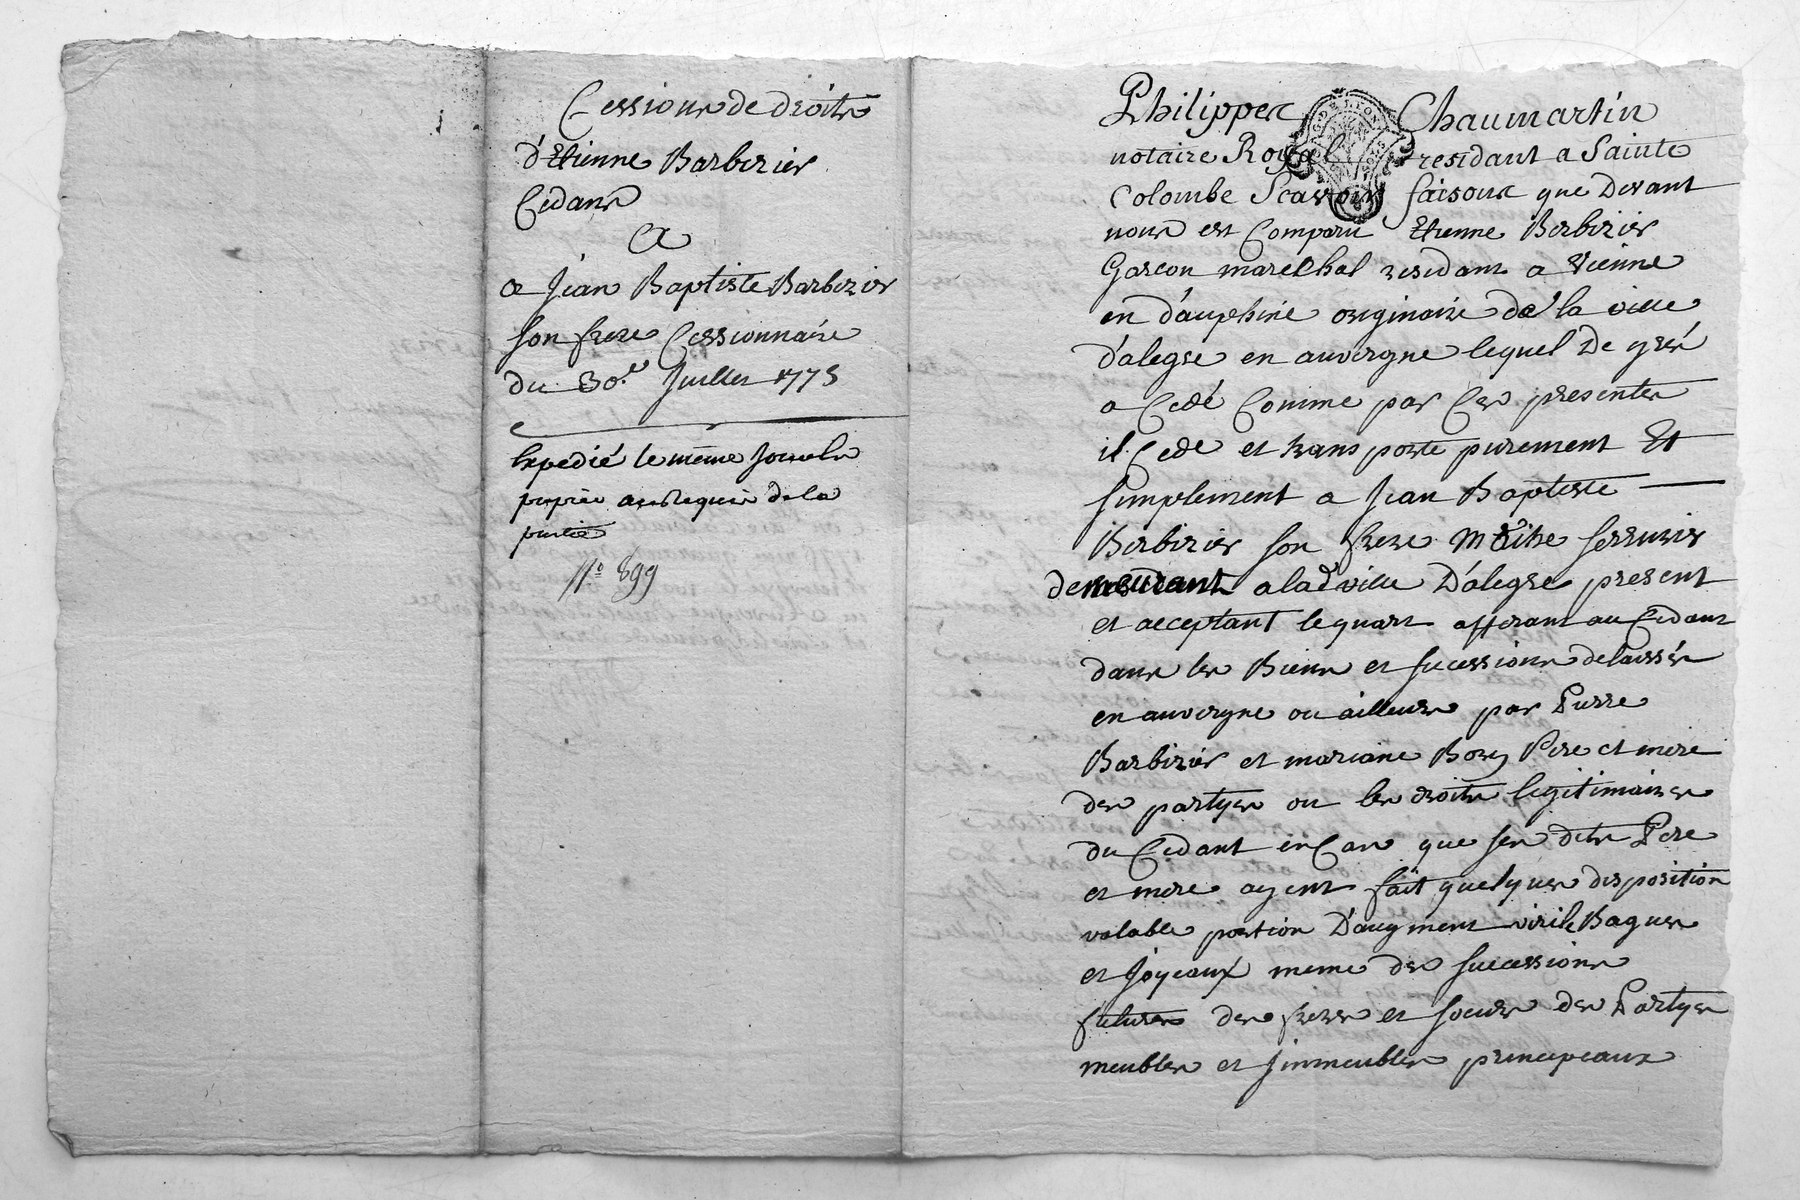 Cessions de droits
d'Etienne Barberier
Cedans
A
a Jean Baptiste Barberier
son frere Cessionnaire
du 30.e Juillet 1773
Expedié le même Jour
de la
partie
N.o 899
Philippes Chaumartin
notaire Royal residant a Sainte
Colombe Scavoir faisons que devant
nous est Comparu Etienne Berberier
Garcon marechal residant a Vienne
en d'auphiné originaire de la ville
d'alegre en auvergne lequel De gré
a Cedé Comme par Ces presentes
il Cede et transporte purement Et
simplement a Jean Baptiste
Berberier son frere Maitre serrurier
demeurant a lad ville D'alegre present
et acceptant le quart afferant au Cedant
dans les Biens et sucessions delaissés
en auvergne ou ailleurs par Pierre
Barberier et mariane Bory Pere et mere
des partyes ou les droits legitimaires
du Cedant en Cas que ses dits Pere
et mere ayent fait quelques disposition
valable portion D'augment virile Bagues
et Joyeaux meme des successions
futures des freres et soeurs des Partyes
meubles et Jmmeubles principeaux